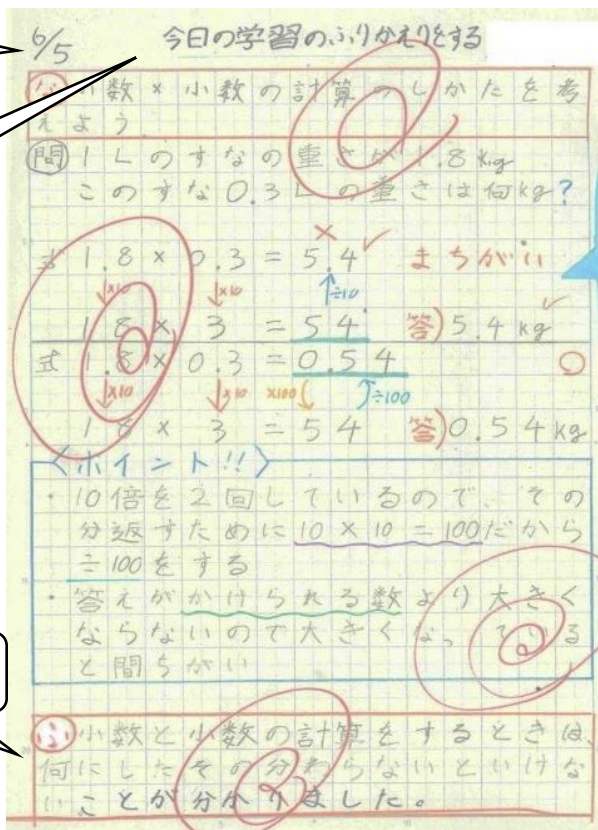 6/5 今日の学習のふりかえりをする
な 小数×小数の計算のしかたを考
えよう
問 1Lのすなの重さが1.8kg
このすな0.3Lの重さは何kg?
×
式 1.8×0.3=5.4 まちがい
↓×10 ↓×10 ↑÷10
18×3=54 答)5.4kg
式 1.8×0.3=0.54
↓×10 ↓×10 ×100 ÷100
18×3=54 答)0.54kg
〈ポイント!!〉
・10倍を2回しているので、その
分返すために10×10=100だから
÷100をする
・答えがかけられる数より大きく
ならないので大きくなっている
と間ちがい
ふ 小数と小数の計算をするときは、
何にしたその分わらないといけな
いことが分かりました。